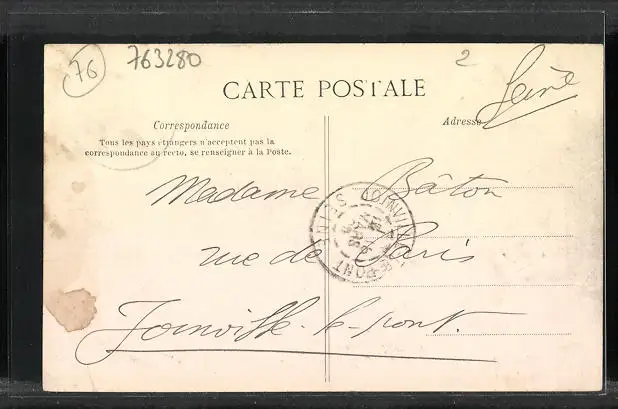 76
763280
2
Seine
CARTE POSTALE
Correspondance
Adresse
Tous les pays étrangers n'acceptent pas la
correspondance au recto, se renseigner à la Poste.
Madame Bâton
rue de Paris
Joinville-le-pont.
JOINVILLE-LE-PONT
SEINE
MARS